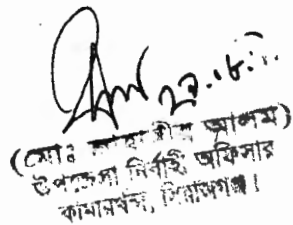 (মোঃ আলম)
উপজেলা নির্বাহী অফিসার
কামারখন্দ, সিরাজগঞ্জ।